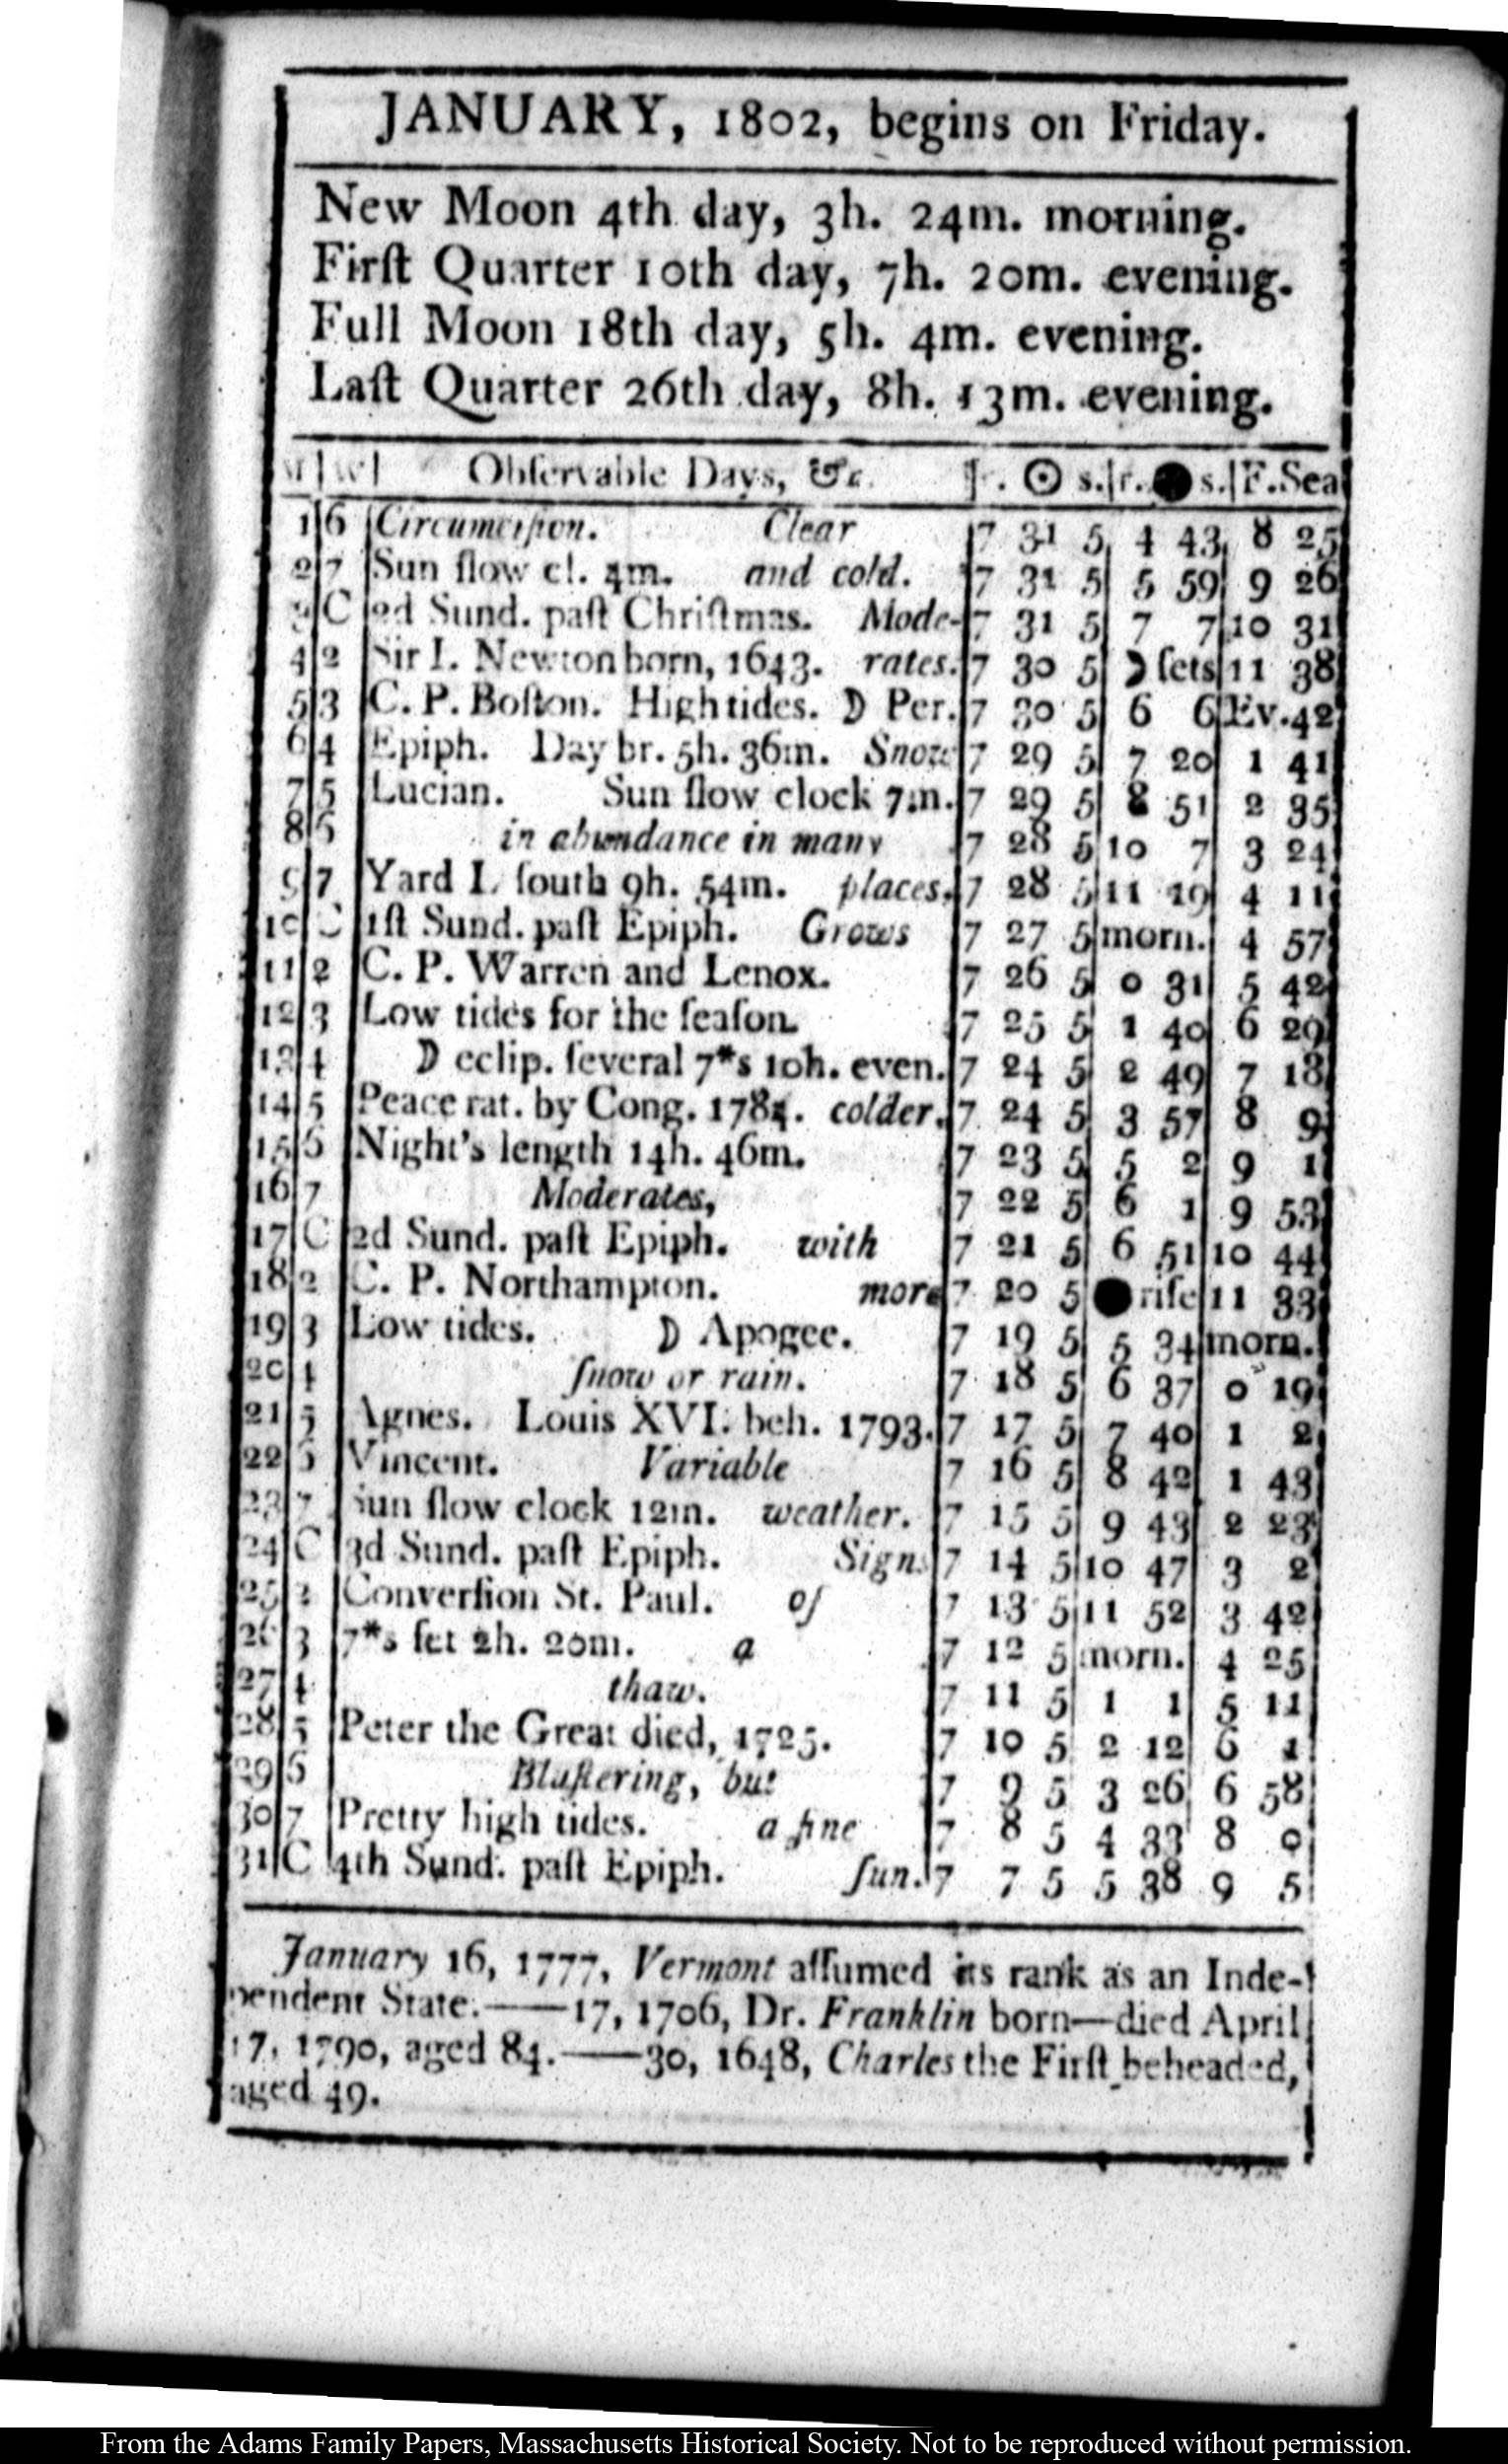 JANUARY, 1802, begins on Friday.
New Moon 4th day, 3h. 24m. morning.
Firſt Quarter 10th day, 7h. 20m. evening.
Full Moon 18th day, 5h. 4m. evening.
Laſt Quarter 26th day, 8h. 13m. evening.
Obſervable Days, &c. r. ☉ s. r. ● s. F. Sea
1 6 Circumciſion. Clear 7 31 5 4 43 8 25
2 7 Sun ſlow cl. 4m. and cold. 7 31 5 5 59 9 26
3 C 2d Sund. paſt Chriſtmas. Mode- 7 31 5 7 7 10 31
4 2 Sir I. Newton born, 1643. rates. 7 30 5 ☽ ſets 11 38
5 3 C. P. Boſton. High tides. ☽ Per. 7 30 5 6 6 Ev. 42
6 4 Epiph. Day br. 5h. 36m. Snow 7 29 5 7 20 1 41
7 5 Lucian. Sun ſlow clock 7m. 7 29 5 8 51 2 35
8 6 in abundance in many 7 28 5 10 7 3 24
9 7 Yard L ſouth 9h. 54m. places. 7 28 5 11 19 4 11
10 C 1ſt Sund. paſt Epiph. Grows 7 27 5 morn. 4 57
11 2 C. P. Warren and Lenox. 7 26 5 0 31 5 42
12 3 Low tides for the ſeaſon. 7 25 5 1 40 6 29
13 4 ☽ eclip. ſeveral 7*s 10h. even. 7 24 5 2 49 7 18
14 5 Peace rat. by Cong. 1784. colder. 7 24 5 3 57 8 9
15 6 Night's length 14h. 46m. 7 23 5 5 2 9 1
16 7 Moderates, 7 22 5 6 1 9 53
17 C 2d Sund. paſt Epiph. with 7 21 5 6 51 10 44
18 2 C. P. Northampton. more 7 20 5 ● riſe 11 33
19 3 Low tides. ☽ Apogee. 7 19 5 5 34 morn.
20 4 ſnow or rain. 7 18 5 6 37 0 19
21 5 Agnes. Louis XVI. beh. 1793. 7 17 5 7 40 1 2
22 6 Vincent. Variable 7 16 5 8 42 1 43
23 7 Sun ſlow clock 12m. weather. 7 15 5 9 43 2 23
24 C 3d Sund. paſt Epiph. Signs 7 14 5 10 47 3 2
25 2 Converſion St. Paul. of 7 13 5 11 52 3 42
26 3 7*s ſet 2h. 20m. a 7 12 5 morn. 4 25
27 4 thaw. 7 11 5 1 1 5 11
28 5 Peter the Great died, 1725. 7 10 5 2 12 6 1
29 6 Bluſtering, but 7 9 5 3 26 6 58
30 7 Pretty high tides. a fine 7 8 5 4 33 8 0
31 C 4th Sund. paſt Epiph. ſun. 7 7 5 5 38 9 5
January 16, 1777, Vermont aſſumed its rank as an Inde-
pendent State.——17, 1706, Dr. Franklin born—died April
17, 1790, aged 84.——30, 1648, Charles the Firſt beheaded,
aged 49.
From the Adams Family Papers, Massachusetts Historical Society. Not to be reproduced without permission.